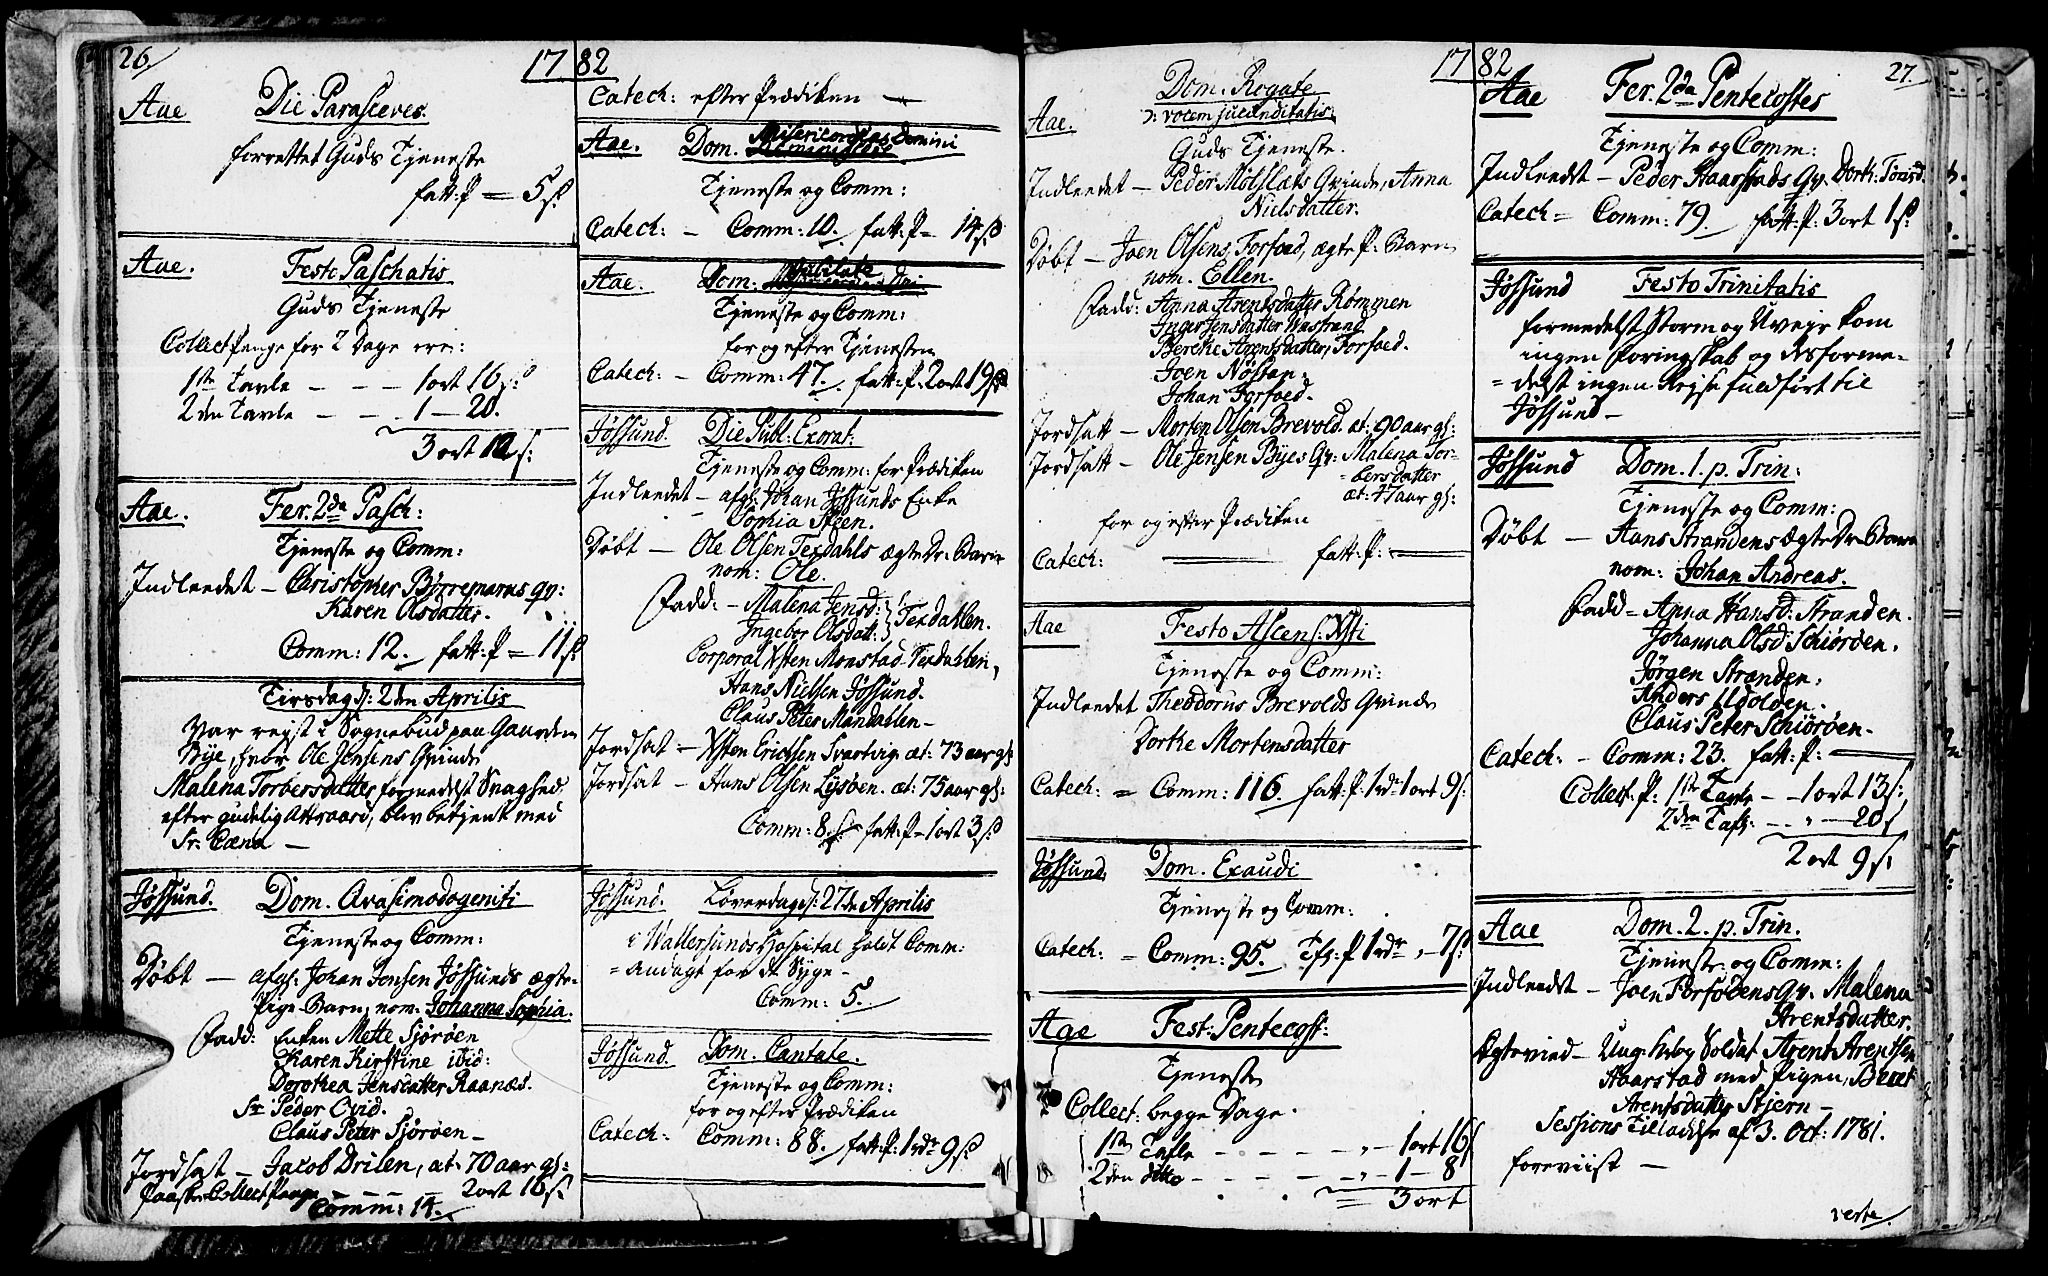 26.
17 82
Aae Die Parasceves.
forrettet Guds Tjeneste
fatt: P = 5 s:
Aae. Festo Paschatis
Guds Tjeneste
Collect Penge for 2 Dage ere:
1ste Tavle - - - 1 ort 16 s:
2den Tavle - - - 1 - 20.
3 ort 12 s:
Aae. Fer. 2da Pasch:
Tjeneste og Comm:
Indleedet - Christopher Børremarus qv:
Karen Olsdatter.
Comm: 12. fatt: P = 11 s:
Tirsdag d: 2den Aprilis
Var rejst i Sognebud paa Gaarden
Bye, hvor Ole Jensens Qvinde
Malena Torbersdatter formedelst Svaghed
efter gudelig Attraard, blev betjent med
Sr: Cæna -
Jøssund. Dom. Qvasimodogeniti
Tjeneste og Comm:
Døbt - afg: Johan Jensen Jøssunds ægte
Pige Barn, nom. Johanna Sophia.
Fadd: Enken Mette Sjørøen
Karen Kirstine ibid:
Dorothea Jensdatter Raanæs.
Sr: Peder Ovid.
Claus Peter Sjørøen -
Jordsat - Jacob Drilen, æt: 70 aar gl:
Paaske Collect Penge - - - - 2 ort 16 s:
Comm: 14.
Catech: efter Prædiken -
Aae. Dom. Misericordias Domini
Tjeneste og Comm:
Catech: - Comm: 10. fatt: P - 14 s:
Aae. Dom. Jubilate
Tjeneste og Comm:
for og efter Tjenesten
Catech: - Comm: 47. fatt: P: 2 ort 19 s:
Jøssund. Die Publ: Exorat:
Tjeneste og Comm: for Prædiken
Indleedet - afg: Johan Jøssunds Enke
Sophia Steen.
Døbt - Ole Olsen Texdahls ægte Dr: Barn
nom: Ole.
Fadd: - Malena Jensd: } Texdahlen.
Ingebor Olsdatt:
Corporal Østen Monstad - Texdahlen,
Hans Nielsen Jøssund.
Claus Peter Mandahlen -
Jordsat - Østen Erichsen Svartvig æt: 73 aar gl:
Jordsat - Hans Olsen Lysøen. æt: 75 aar gl:
Comm: 8. fatt: P - 1 ort 3 s:
Jøssund. Løverdag d: 27de Aprilis
i Wallersunds Hospital holdt Comm:
= andagt for de Syge -
Comm: 5.
Jøssund. Dom. Cantate.
Tjeneste og Comm:
for og efter Prædiken
Catech: Comm: 88. fatt: P: 1 rdr 9 s:
17 82
27.
Dom. Rogate
Aae. ɔ: vocem jucunditatis.
Guds Tjeneste.
Indleedet - Peder Mølslæts Qvinde, Anna
Nielsdatter.
Døbt - Joen Olsens, Forfoed, ægte P: Barn
nom. Ellen.
Fadd: Anna Arentsdatter Rømmen
Inger Jensdatter Wastrand
Bereke Arentsdatter, Forfoed.
Joen Nøstan:
Johan Forfoed.
Jordsatt - Morten Olsen Brevold. æt: 90 aar gl:
Jordsatt - Ole Jensen Byes Qv: Malena Tor-
= bersdatter
æt: 47 aar gl:
for og efter Prædiken
Catech: fatt: P:
Aae Festo Ascens: Xsti
Tjeneste og Comm:
Indleedet Theodorus Brevolds Qvinde
Dorke Mortensdatter
Catech: = Comm: 116. fatt: P: 1 rdr 1 ort 9 s:
Jøssund. Dom. Exaudi
Tjeneste og Comm:
Catech: = Comm: 95. Tfs: P 1 rdr „ - 7 s:
Aae Fest: Pentecost:
Tjeneste
Collect: begge Dage.
1ste Tafle - - - - - „ - 1 ort 16 s
2den ditto - - - - - „ - 1 - 8
3 ort
Aae Fer. 2da Pentecostes
Tjeneste og Comm:
Indleedet - Peder Haarstads Qv. Dork: Tørrsd.
Catech = Comm: 79. fatt: P: 3 ort 1 s:
Jøssund Festo Trinitatis
formedelst Storm og Uvejr kom
ingen Føringskab og desforme-
= delst ingen Rejse fuldført til
Jøssund -
Jøssund Dom. 1. p. Trin:
Tjeneste og Comm:
Døbt - Hans Strandens ægte Dr: Barn
nom: Johan Andreas.
Fadd = Anna Hansd: Stranden.
Johanna Olsd: Schiørøen.
Jørgen Stranden.
Anders Udolden.
Claus Peter Schiørøen.
Catech: - Comm: 23. fatt: P:
Collect: P: 1ste Tavle - - 1 ort 13 s:
2den Tafl: - - „ - 20 s
2 ort 9 s:
Aae Dom. 2. p. Trin.
Tjeneste og Comm:
Indleedt - Joen Forsøens Qv. Malena
Arentsdatter.
Egtevied - Ung: Karl og Soldat Arent Arentsen
Haarstad med Pigen, Beret
Arentsdatter Stjern -
Sessions Tilladelse af 3. Oct: 1781.
foreviist -
verte.